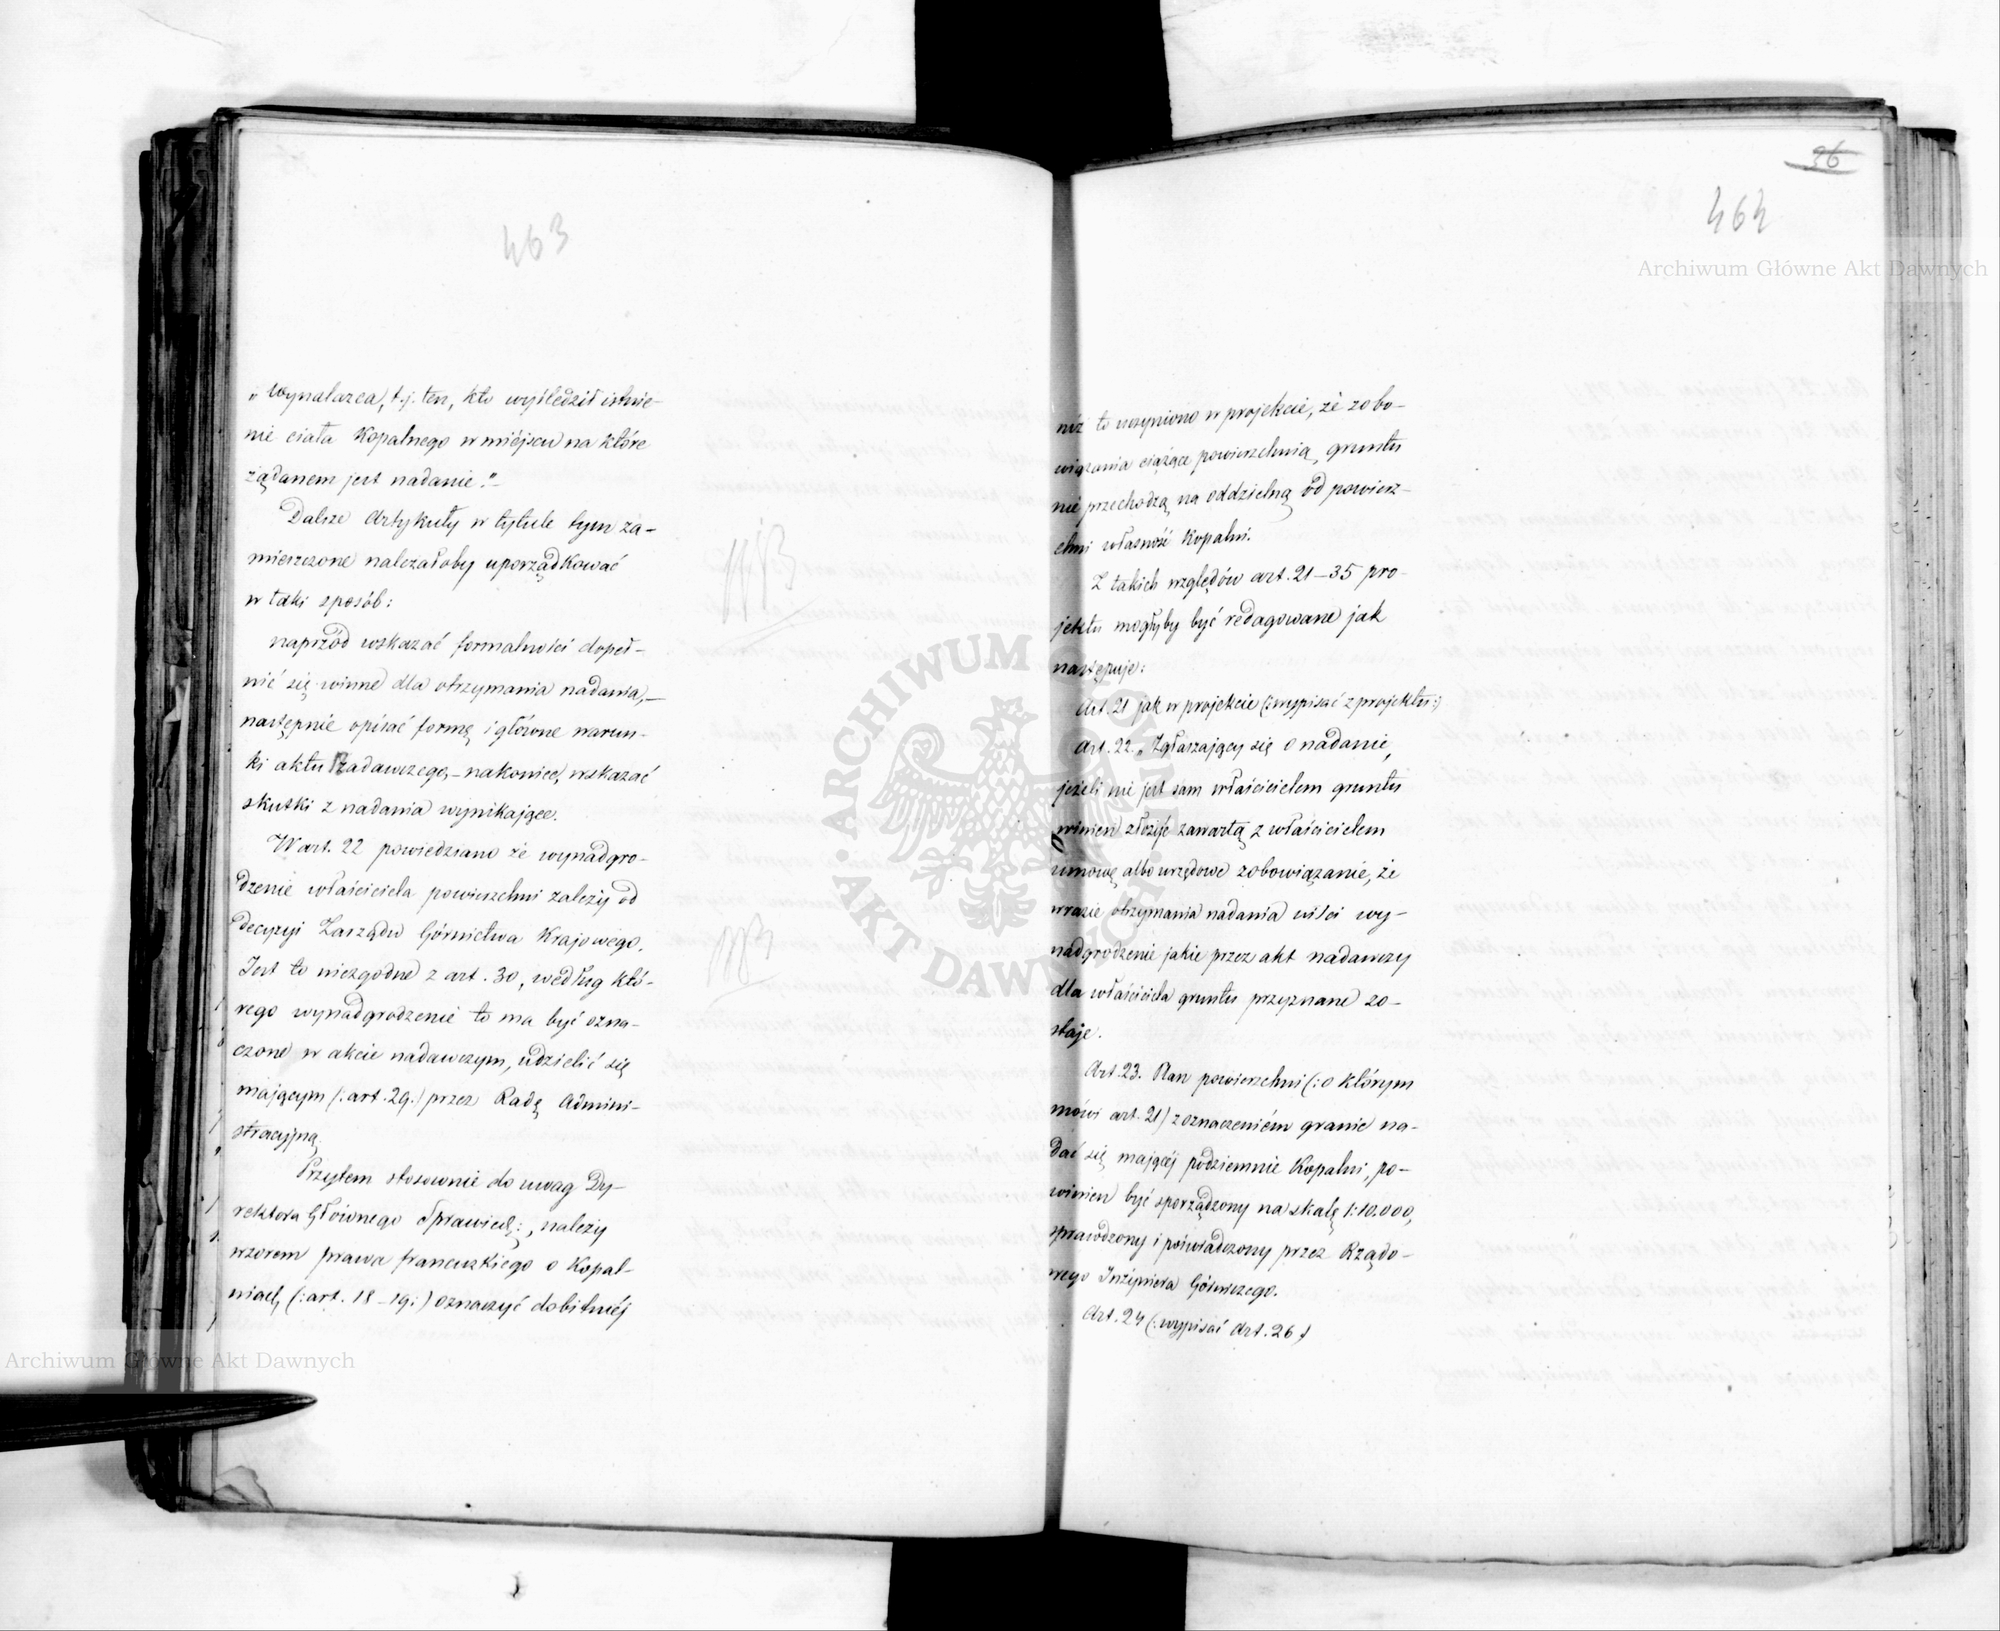 463
„Wynalazca, t.j. ten, kto wyśledził istnie-
nie ciała Kopalnego w miéjscu na które
żądanem jest nadanie."–
Dalsze Artykuły w tytule tym za-
mieszczone należałoby uporządkować
w taki sposób:
naprzód wskazać formalności dopeł-
nić się winne dla otrzymania nadania,–
następnie opisać formę i główne warun-
ki aktu Nadawczego,– nakoniec, wskazać
skutki z nadania wynikające.
W art. 22 powiedziano że wynadgro-
dzenie właściciela powierzchni zależy od
decyzyi Zarządu Górnictwa Krajowego.
Jest to niezgodne z art. 30, według któ-
rego wynadgrodzenie to ma być ozna-
czone w akcie nadawczym, udzielić się
mającym (:art. 29:) przez Radę Admini-
stracyjną.
Przytem stosownie do uwag Dy-
rektora Głównego Sprawiedl:, należy
wzorem prawa francuzkiego o Kopal-
niach (:art. 18–19:) oznaczyć dobitniéj
36
464
niż to uczyniono w projekcie, że zobo-
wiązania ciążące powierzchnią, gruntu
nie przechodzą na oddzielną od powierz-
chni własność Kopalni.
Z takich względów art. 21–35 pro-
jektu mogłyby być redagowane jak
następuje:
Art. 21 jak w projekcie (:wypisać z projektu:)
Art. 22 „Zgłaszający się o nadanie,
jeżeli nie jest sam właścicielem gruntu
winien złożyć zawartą z właścicielem
umowę albo urzędowe zobowiązanie, że
w razie otrzymania nadania uiści wy-
nadgrodzenie jakie przez akt nadawczy
dla właściciela gruntu przyznane zo-
staje.
Art. 23. Plan powierzchni (:o którym
mówi art. 21) z oznaczeniém granic na-
dać się mającéj podziemnie Kopalni, po-
winien być sporządzony na skalę 1:10.000,
sprawdzony i poświadczony przez Rządo-
wego Inżyniera Górniczego.
Art. 24 (:wypisać Art. 26:)
Archiwum Główne Akt Dawnych
ARCHIWUM GŁÓWNE AKT DAWNYCH
Archiwum Główne Akt Dawnych